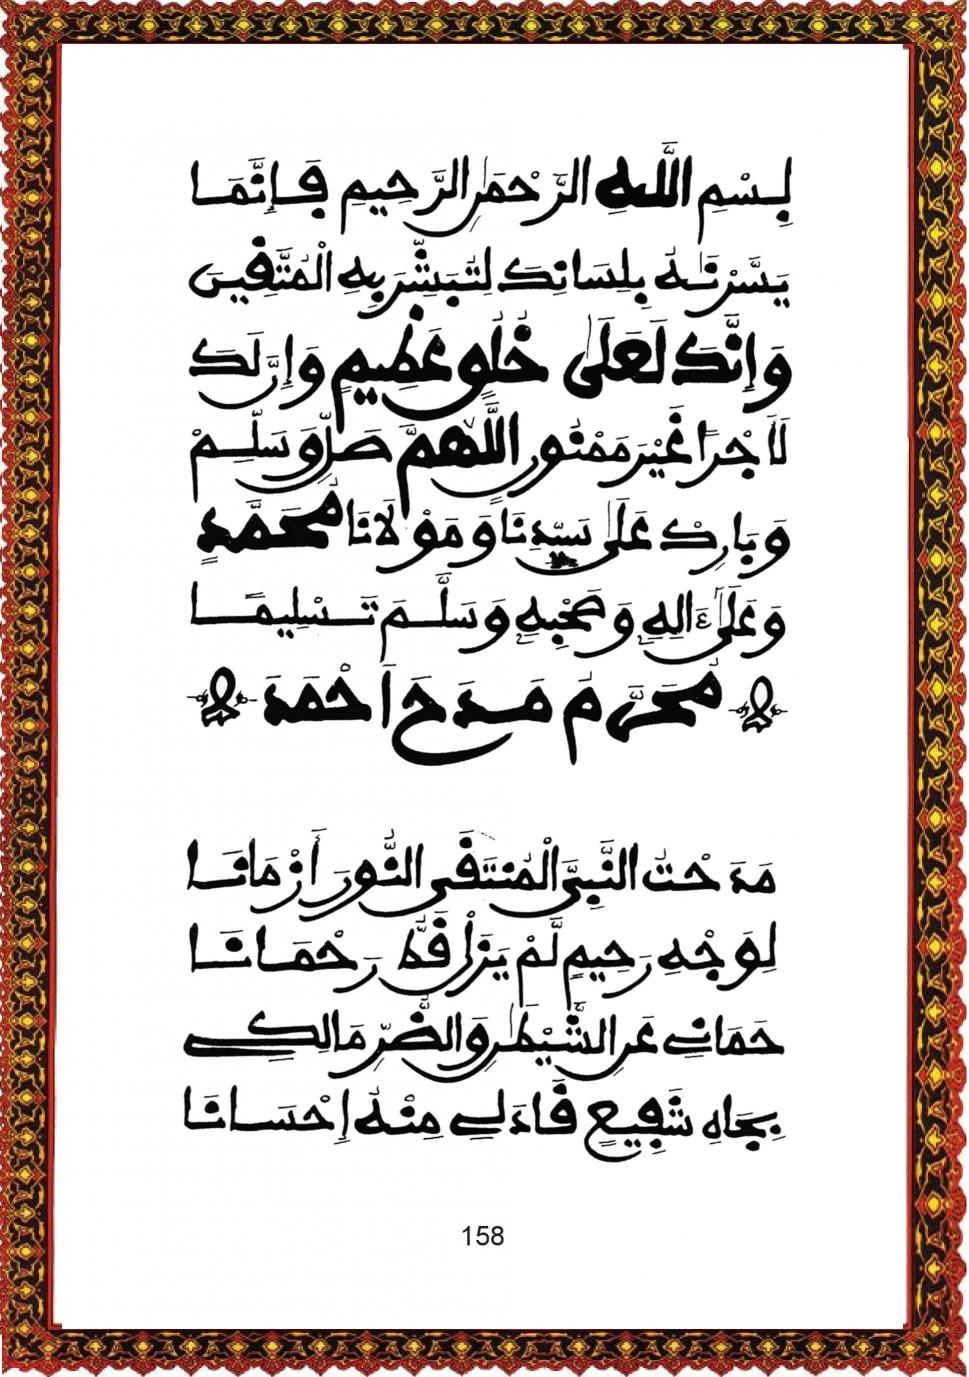 بِسْمِ اللَّهِ الرَّحْمَٰنِ الرَّحِيمِ فَإِنَّمَا
يَسَّرْنَٰهُ بِلِسَانِكَ لِتُبَشِّرَ بِهِ الْمُتَّقِينَ
وَإِنَّكَ لَعَلَىٰ خُلُقٍ عَظِيمٍ وَإِنَّ لَكَ
لَأَجْرًا غَيْرَ مَمْنُونٍ اللَّهُمَّ صَلِّ وَسَلِّمْ
وَبَارِكْ عَلَىٰ سَيِّدِنَا وَمَوْلَانَا مُحَمَّدٍ
وَعَلَىٰ ءَالِهِ وَصَحْبِهِ وَسَلَّمَ تَسْلِيمًا
مَدْحَ أَحْمَدَ
مَدَحْتُ النَّبِيَّ الْمُنتَقَى النُّورَ أَزْمَانَا
لِوَجْهِ رَحِيمٍ لَمْ يَزَلْ قَطُّ رَحْمَانَا
حَمَانِي عَنِ الشَّيْطَٰنِ وَالضُّرِّ مَالِكِي
بِجَاهِ شَفِيعٍ قَادَ لِي مِنْهُ إِحْسَانَا
158